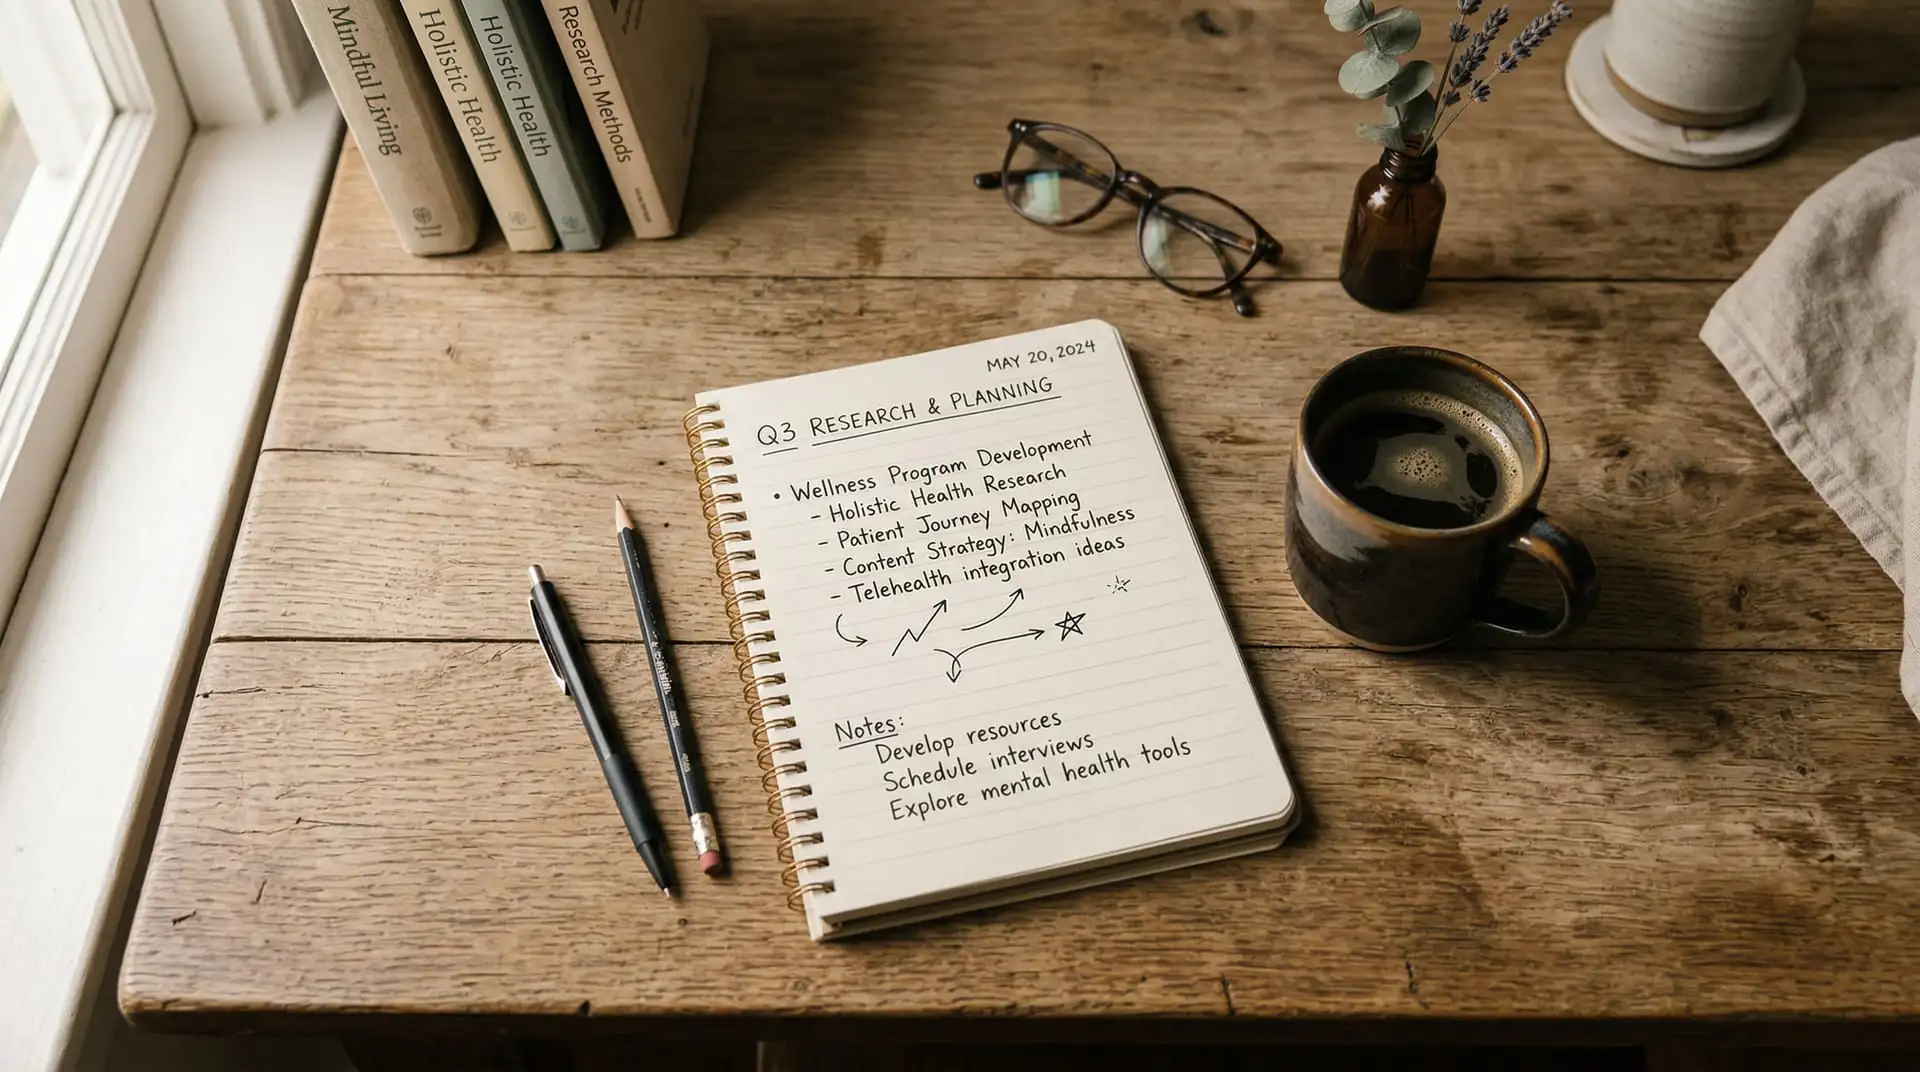 Mindful Living
Holistic Health
Holistic Health
Research Methods
MAY 20, 2024
Q3 RESEARCH & PLANNING
• Wellness Program Development
- Holistic Health Research
- Patient Journey Mapping
- Content Strategy: Mindfulness
- Telehealth integration ideas
Notes:
Develop resources
Schedule interviews
Explore mental health tools